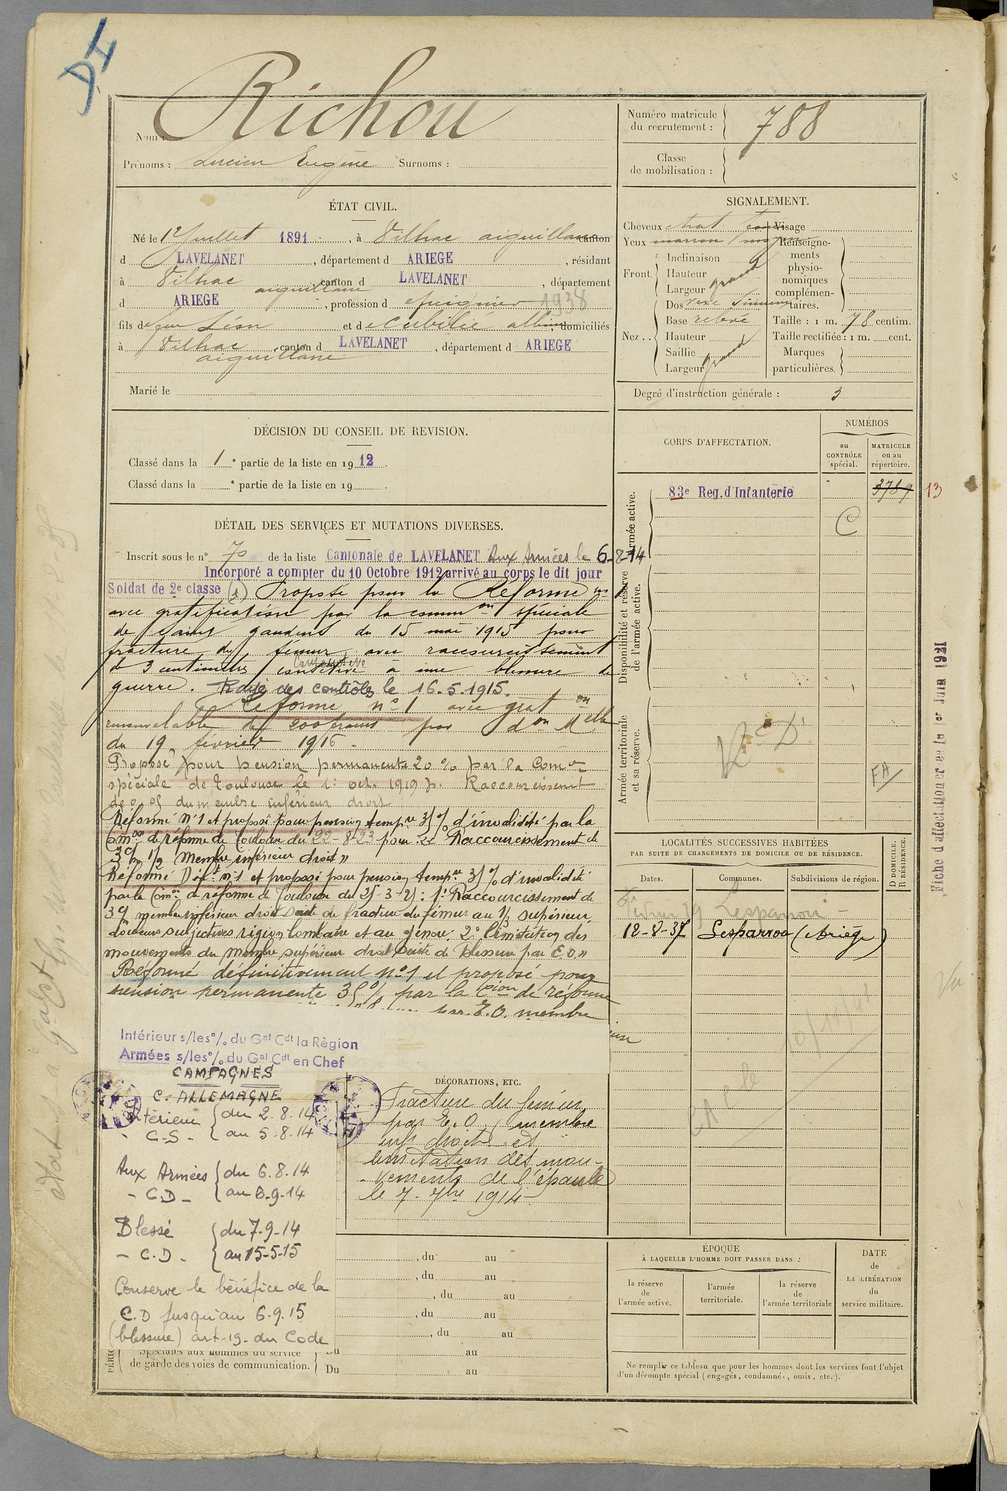 Richou
Nom :
Prénoms : Lucien Eugène Surnoms :
Numéro matricule
du recrutement : 788
Classe
de mobilisation :
ÉTAT CIVIL.
Né le 12 Juillet 1891, à Vilhac aiguillane canton
d LAVELANET, département d ARIEGE, résidant
à Vilhac aiguillane canton d LAVELANET, département
d ARIEGE, profession d 1938
fils de feu Léon et de domiciliés
à Vilhac aiguillane, canton d LAVELANET, département d ARIEGE
Marié le
DÉCISION DU CONSEIL DE REVISION.
Classé dans la 1e partie de la liste en 1912.
Classé dans la e partie de la liste en 19 .
DÉTAIL DES SERVICES ET MUTATIONS DIVERSES.
Inscrit sous le n° 70 de la liste Cantonale de LAVELANET Aux Armées le 6-8-14
Incorporé a compter du 10 Octobre 1912 arrivé au corps le dit jour
Soldat de 2e classe (1) Proposé pour la Réforme n° 1
avec gratification par la comm on spéciale
de du 15 mai 1915 pour
fracture du fémur avec raccourcissement
de 3 centimètres consécutive à une blessure de
guerre. Rayé des contrôles le 16-5-1915.
Réformé n° 1 avec grat on
renouvelable de 200 francs par d on Melle
du 19 février 1916.
Proposé pour pension permanente 20 % par la Com on
spéciale de Toulouse le 1er oct. 1919 p. Raccourcissement
de 0,05 du membre inférieur droit
Réformé N°1 et proposé pour pension tempre 35% d'invalidité par la
Com on de réforme de Toulouse du 22-8-23 pour Raccourcissement de
3 c/m 1/2 Membre inférieur droit"
Réformé Déft n°1 et proposé pour pension tempre 35% d'invalidité
par la Com on de réforme de Toulouse du 25-3-25: 1° Raccourcissement de
3 c/m membre inférieur droit suite de fracture du fémur au 1/3 supérieur
douleurs subjectives région lombaire et au genou. 2° limitation des
mouvements du Membre supérieur droit suite de blessure par E.O"
Réformé définitivement n°1 et proposé pour
pension permanente 35% par la Cion de réforme
par E.O. membre
Intérieur s/les °/. du Gal Cdt la Région
Armées s/les °/. du Gal Cdt en Chef
CAMPAGNES
C. ALLEMAGNE
Intérieur du 2.8.14
- C.S - au 5-8-14
Aux Armées du 6.8.14
- C.D - au 6-9-14
Blessé du 7-9-14
- C.D. - au 15-5-15
Conserve le bénéfice de la
C.D jusqu'au 6.9.15
(blessure) art-19-du Code
spéciales aux hommes du service
de garde des voies de communication.
DÉCORATIONS, ETC.
Fracture du fémur
par E.O. (membre
inf. droit et
limitation des mou-
vements de l'épaule
le 7 7bre 1914
, du au
, du au
, du au
, du au
, du au
Du au
Du au
SIGNALEMENT.
Cheveux Visage
Yeux marron Renseigne-
ments
physio-
nomiques
complémen-
taires.
Front. Inclinaison
Hauteur
Largeur grand
Nez . . Dos
Base relevé
Hauteur
Saillie
Largeur grand
Taille : 1 m. 78 centim.
Taille rectifiée : 1 m. cent.
Marques
particulières.
Degré d'instruction générale : 3
CORPS D'AFFECTATION.
NUMÉROS
au
CONTRÔLE
spécial.
MATRICULE
ou au
répertoire.
Armée active.
83e Reg. d'Infanterie
3789 13
C
Disponibilité et réserve
de l'armée active.
Armée territoriale
et sa réserve.
FA
LOCALITÉS SUCCESSIVES HABITÉES
PAR SUITE DE CHANGEMENTS DE DOMICILE OU DE RÉSIDENCE.
Dates. Communes. Subdivisions de région.
D DOMICILE.
R RÉSIDENCE.
Lesparrou
12-8-37 Lesparrou (Ariège)
ÉPOQUE
À LAQUELLE L'HOMME DOIT PASSER DANS :
la réserve
de
l'armée active.
l'armée
territoriale.
la réserve
de
l'armée territoriale
DATE
de
LA LIBÉRATION
du
service militaire.
Ne remplir ce tableau que pour les hommes dont les services font l'objet
d'un décompte spécial (engagés, condamnés, omis, etc.).
Fiche d'affectation créée le 1er Juin 1921
Vu